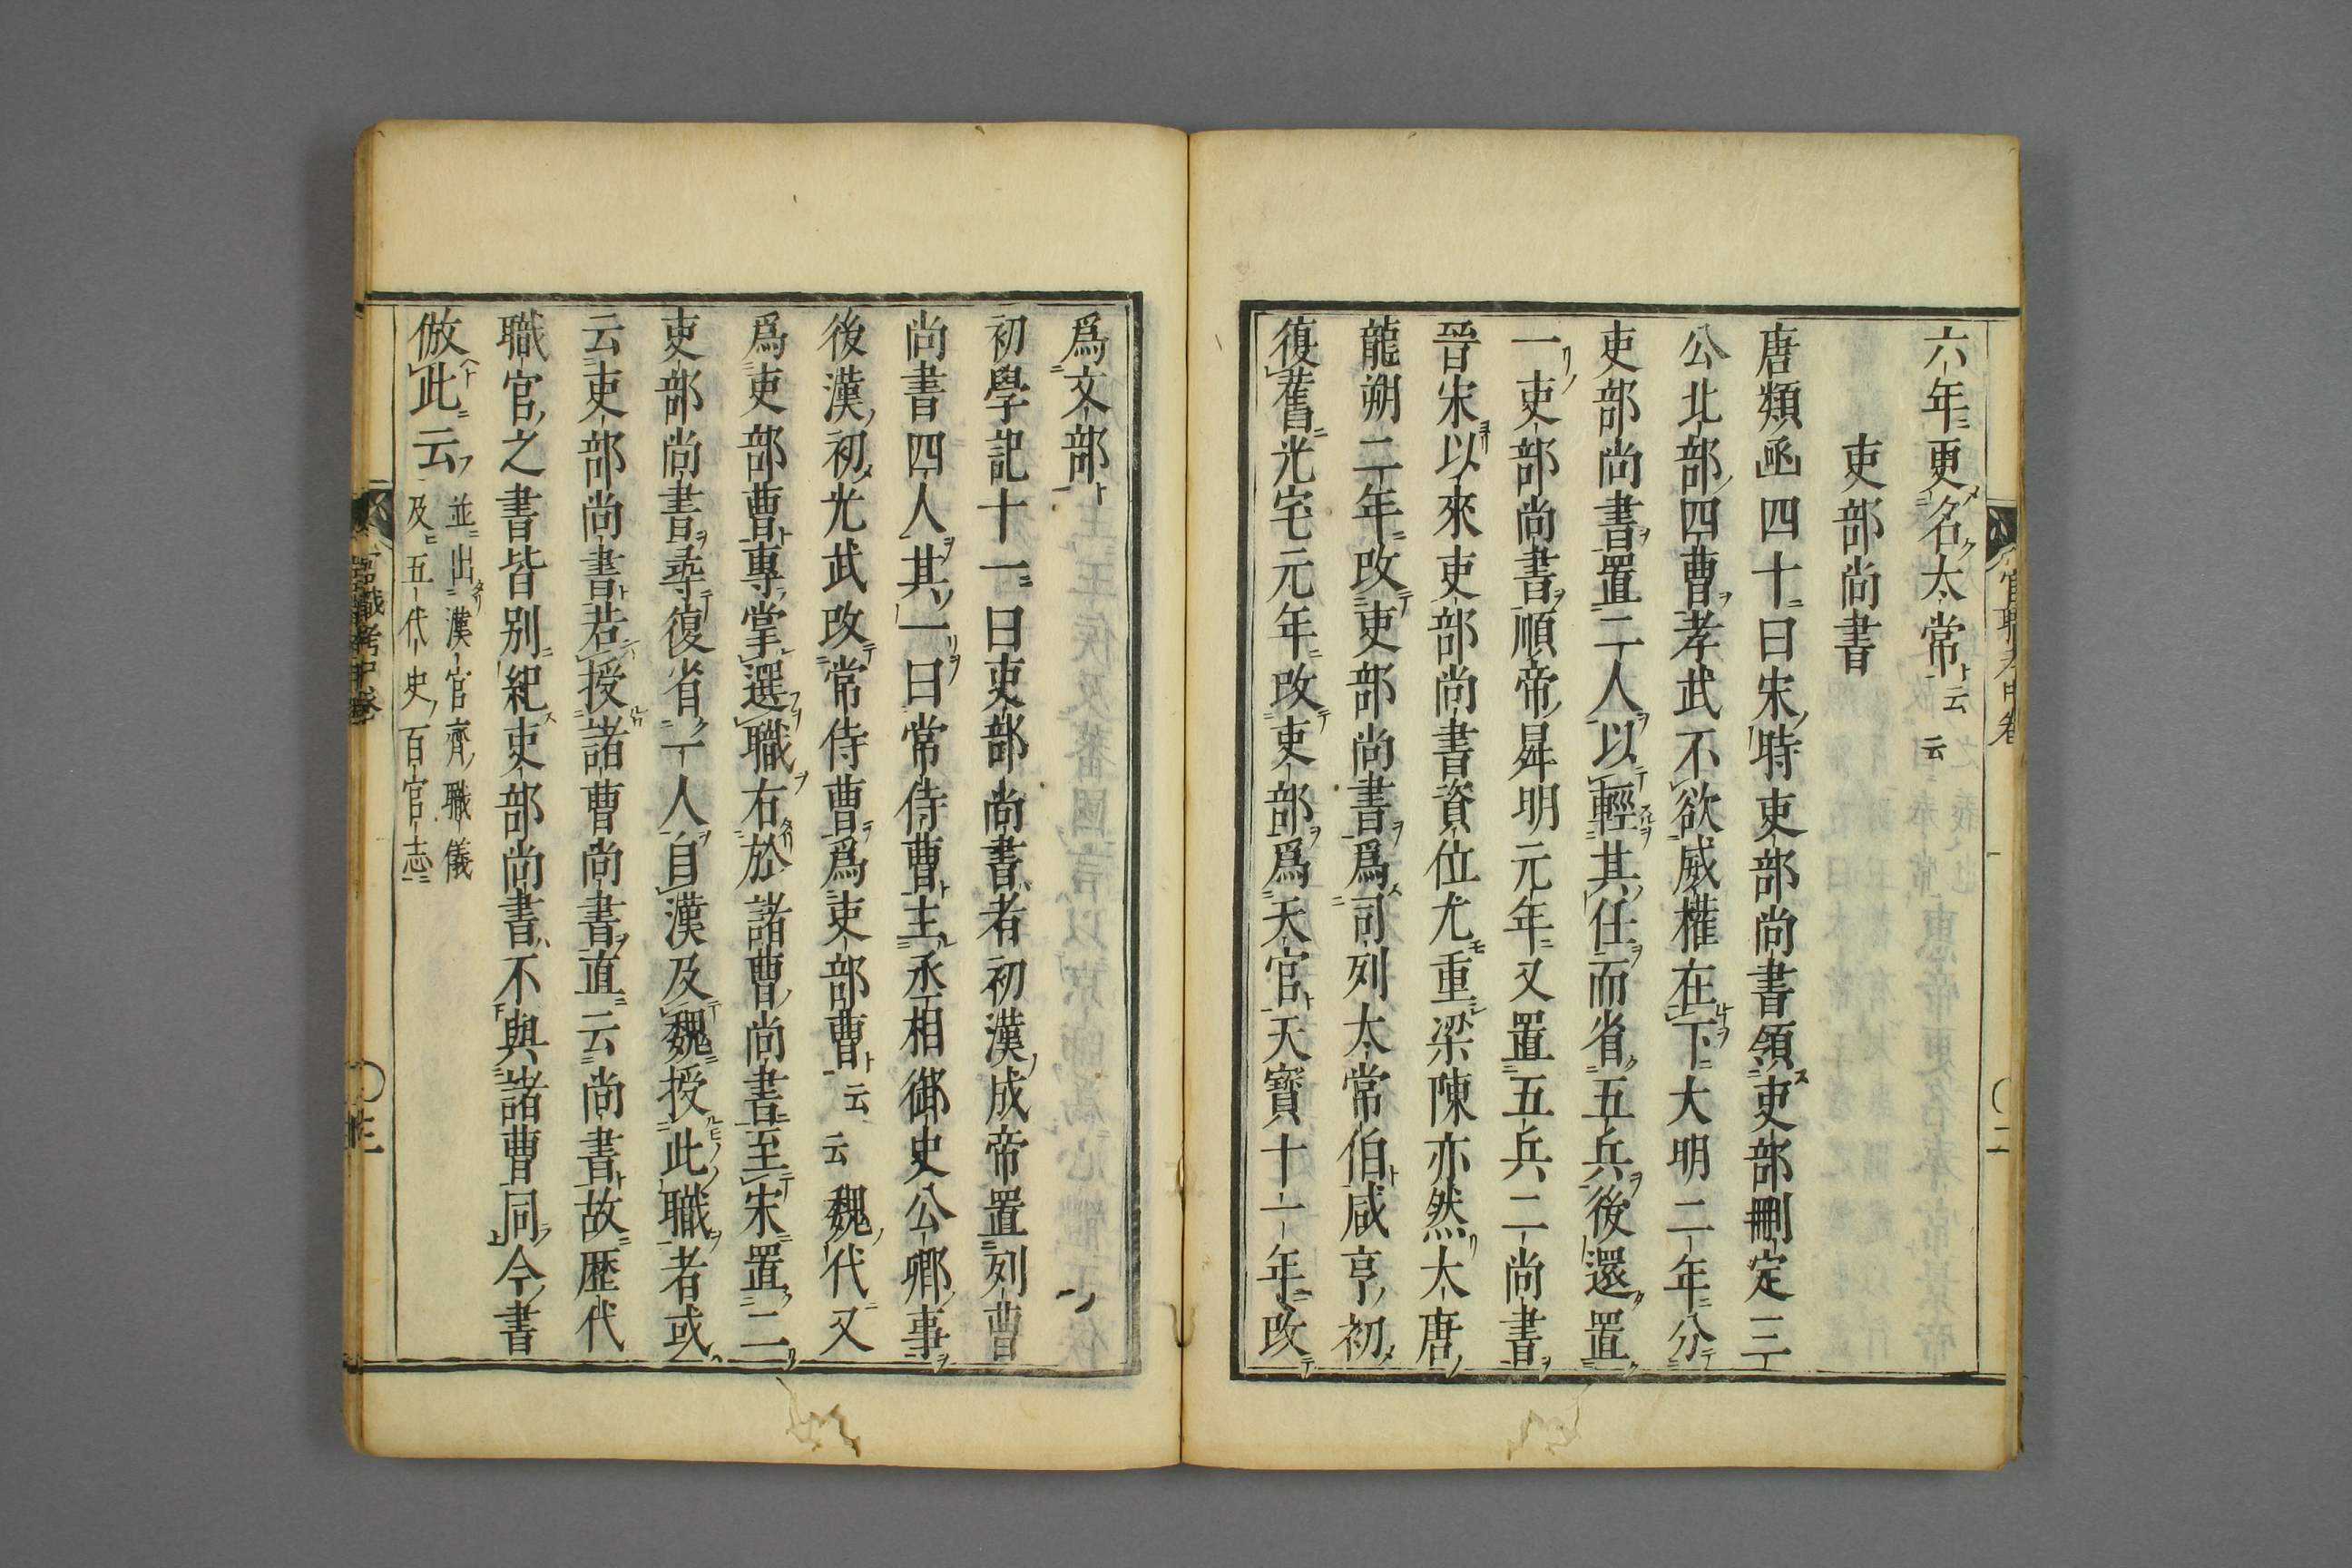 六年更名太常云云
吏部尚書
唐類函四十曰宋時吏部尚書領吏部刪定三
公北部四曹孝武不欲威權在下大明二年分
吏部尚書置二人以輕其任而省五兵後還置
一吏部尚書順帝昇明元年又置五兵二尚書
晉宋以來吏部尚書資位尤重梁陳亦然大唐
龍朔二年改吏部尚書爲司列太常伯咸亨初
復舊光宅元年改吏部爲天官天寶十一年改
爲文部
初學記十一曰吏部尚書者初漢成帝置列曹
尚書四人其一曰常侍曹主丞相御史公卿事
後漢初光武改常侍曹爲吏部曹云云魏代又
爲吏部曹專掌選職右於諸曹尚書至宋置二
吏部尚書尋復省一人自漢及魏授此職者或
云吏部尚書若授諸曹尚書直云尚書故歷代
職官之書皆別紀吏部尚書不與諸曹同今書
倣此云
並出漢官齊職儀
及五代史百官志
職考中卷